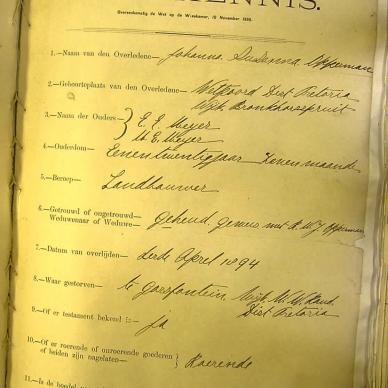 KENNIS.
Overeenkomstig de Wet op de Weeskamer, 12 November 1895.
1.—Naam van den Overledene— Johanna Susanna Opperman
2.—Geboorteplaats van den Overledene— Dist Pretoria
Wijk Bronkhorstspruit
3.—Naam der Ouders— E. E. Meyer
E. Meyer
4.—Ouderdom— Eenentwintig jaar Zeven maande
5.—Beroep— Landbouwer
6.—Getrouwd of ongetrouwd
Weduwenaar of Weduwe— gehuwd, met Opperman
7.—Datum van overlijden— derde April 1894
8.—Waar gestorven— te Wijk
Dist Pretoria
9.—Of er testament bekend is— ja
10.—Of er roerende of onroerende goederen
of beiden zijn nagelaten— Roerende
11.—Is de boedel